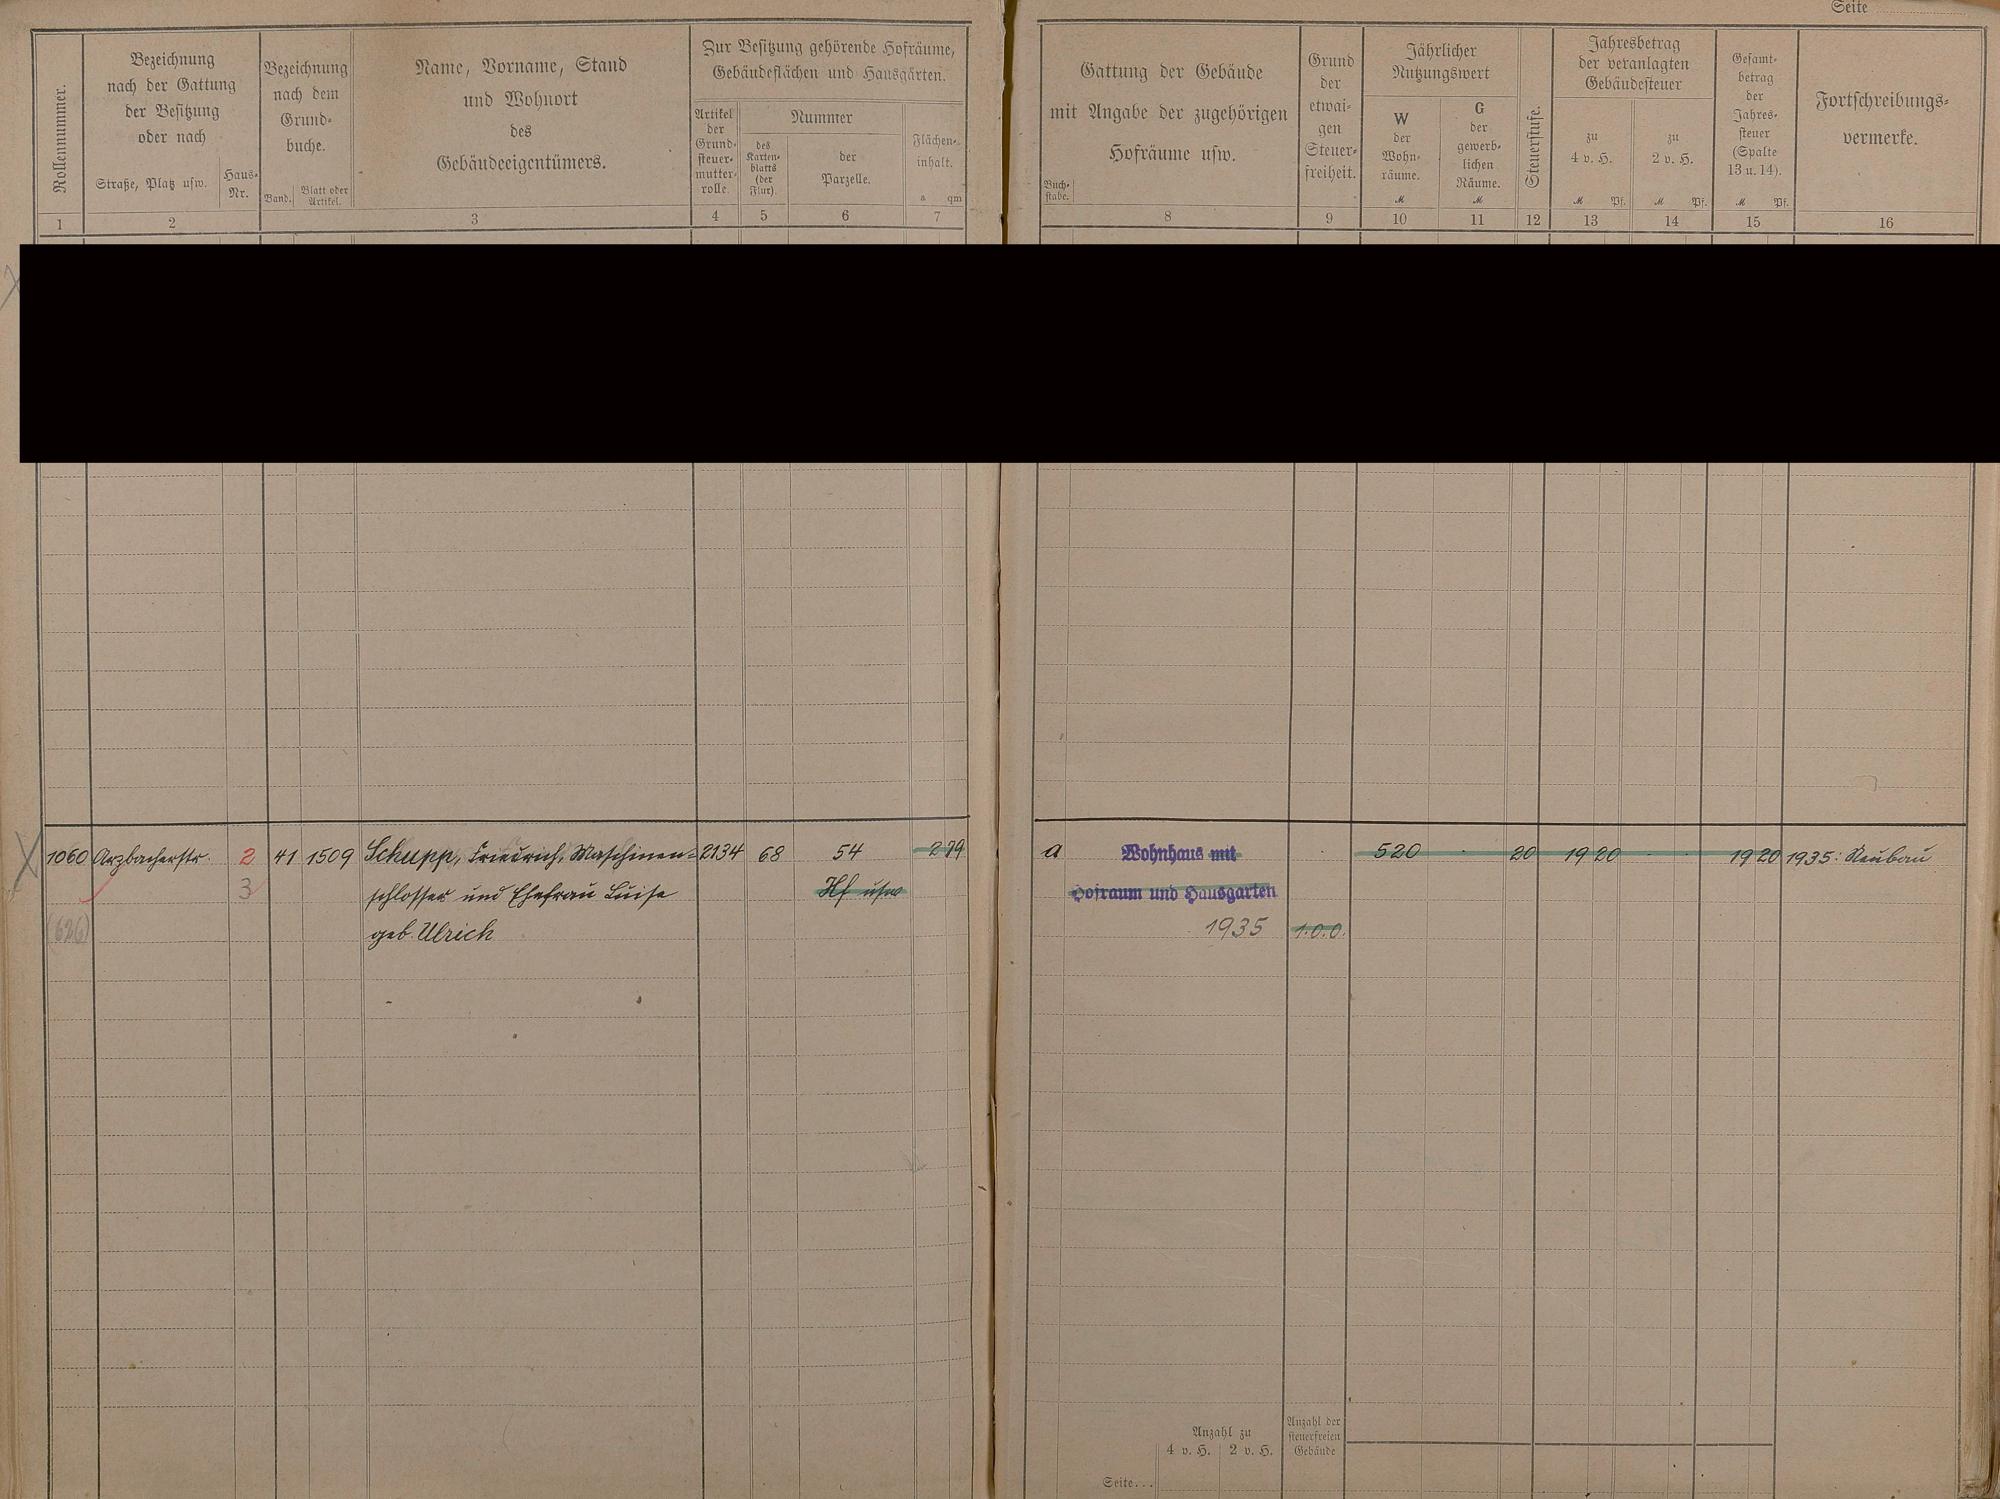 Seite
Rollennummer.
Bezeichnung
nach der Gattung
der Besitzung
oder nach
Straße, Platz usw.
Haus-
Nr.
Bezeichnung
nach dem
Grund-
buche.
Band.
Blatt oder
Artikel.
Name, Vorname, Stand
und Wohnort
des
Gebäudeeigentümers.
Zur Besitzung gehörende Hofräume,
Gebäudeflächen und Hausgärten.
Artikel
der
Grund-
steuer-
mutter-
rolle.
Nummer
des
Karten-
blatts
(der
Flur).
der
Parzelle.
Flächen-
inhalt.
a qm
Gattung der Gebäude
mit Angabe der zugehörigen
Hofräume usw.
Buch-
stabe.
Grund
der
etwai-
gen
Steuer-
freiheit.
Jährlicher
Nutzungswert
W
der
Wohn-
räume.
M
G
der
gewerb-
lichen
Räume.
M
Steuerstufe.
Jahresbetrag
der veranlagten
Gebäudesteuer
zu
4 v. H.
M Pf.
zu
2 v. H.
M Pf.
Gesamt-
betrag
der
Jahres-
steuer
(Spalte
13 u. 14).
M Pf.
Fortschreibungs-
vermerke.
1 2 3 4 5 6 7 8 9 10 11 12 13 14 15 16
1060 Arzbacherstr. 2 41 1509 Schupp, Friedrich, Maschinen- 2134 68 54 2 79 a Wohnhaus mit 520 20 19 20 19 20 1935: Neubau
3 schlosser und Ehefrau Luise Hf usw Hofraum und Hausgarten
(626) geb. Ulrich 1935 1.0.0.
Anzahl zu
4 v. H. 2 v. H.
Anzahl der
steuerfreien
Gebäude
Seite...